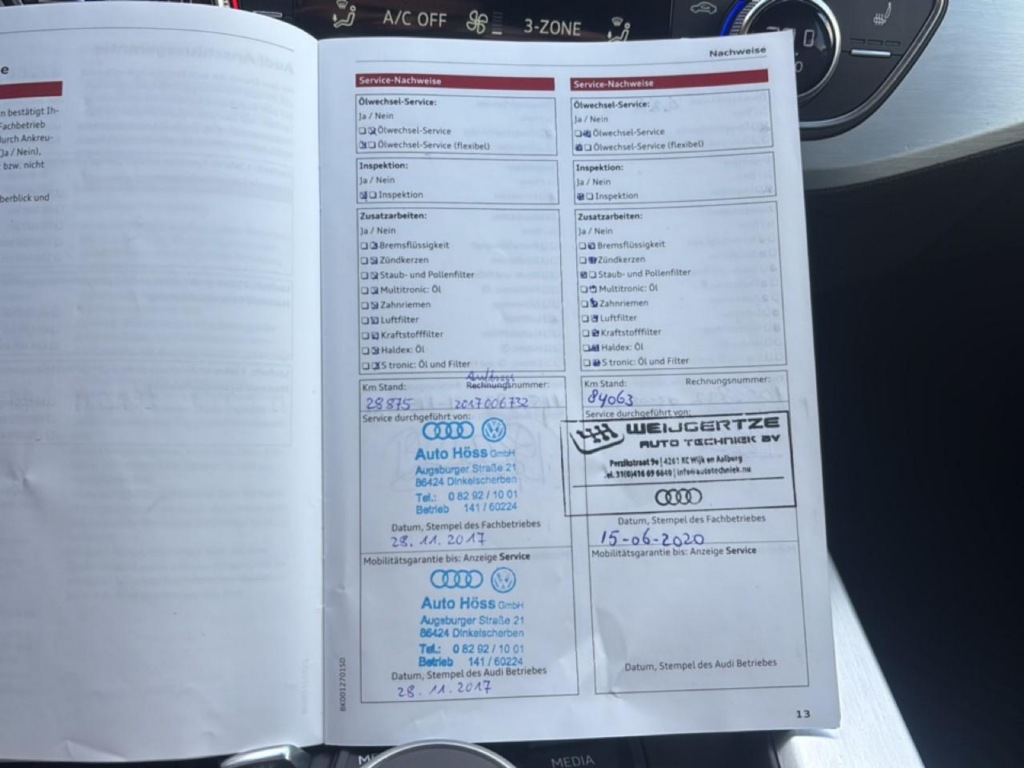 A/C OFF
3-ZONE
e
n bestätigt Ih-
Fachbetrieb
durch Ankreu-
Ja / Nein),
bzw. nicht
berblick und
Nachweise
Service-Nachweise
Ölwechsel-Service:
Ja / Nein
Ölwechsel-Service
Ölwechsel-Service (flexibel)
Inspektion:
Ja / Nein
Inspektion
Zusatzarbeiten:
Ja / Nein
Bremsflüssigkeit
Zündkerzen
Staub- und Pollenfilter
Multitronic: Öl
Zahnriemen
Luftfilter
Kraftstofffilter
Haldex: Öl
S tronic: Öl und Filter
Auftrags
Km Stand: Rechnungsnummer:
28875 2017006732
Service durchgeführt von:
Auto Höss GmbH
Augsburger Straße 21
86424 Dinkelscherben
Tel.: 0 82 92 / 10 01
Betrieb 141 / 60224
Datum, Stempel des Fachbetriebes
28.11.2017
Mobilitätsgarantie bis: Anzeige Service
Auto Höss GmbH
Augsburger Straße 21
86424 Dinkelscherben
Tel.: 0 82 92 / 10 01
Betrieb 141 / 60224
Datum, Stempel des Audi Betriebes
28.11.2017
Service-Nachweise
Ölwechsel-Service:
Ja / Nein
Ölwechsel-Service
Ölwechsel-Service (flexibel)
Inspektion:
Ja / Nein
Inspektion
Zusatzarbeiten:
Ja / Nein
Bremsflüssigkeit
Zündkerzen
Staub- und Pollenfilter
Multitronic: Öl
Zahnriemen
Luftfilter
Kraftstofffilter
Haldex: Öl
S tronic: Öl und Filter
Km Stand: Rechnungsnummer:
84063
Service durchgeführt von:
WEIJGERTZE
AUTO TECHNIEK BV
Perzikstraat 9e | 4261 KC Wijk en Aalburg
tel. 31(0)416 69 6640 | info@autotechniek.nu
Datum, Stempel des Fachbetriebes
15-06-2020
Mobilitätsgarantie bis: Anzeige Service
Datum, Stempel des Audi Betriebes
8K0012701SD
13
MEDIA